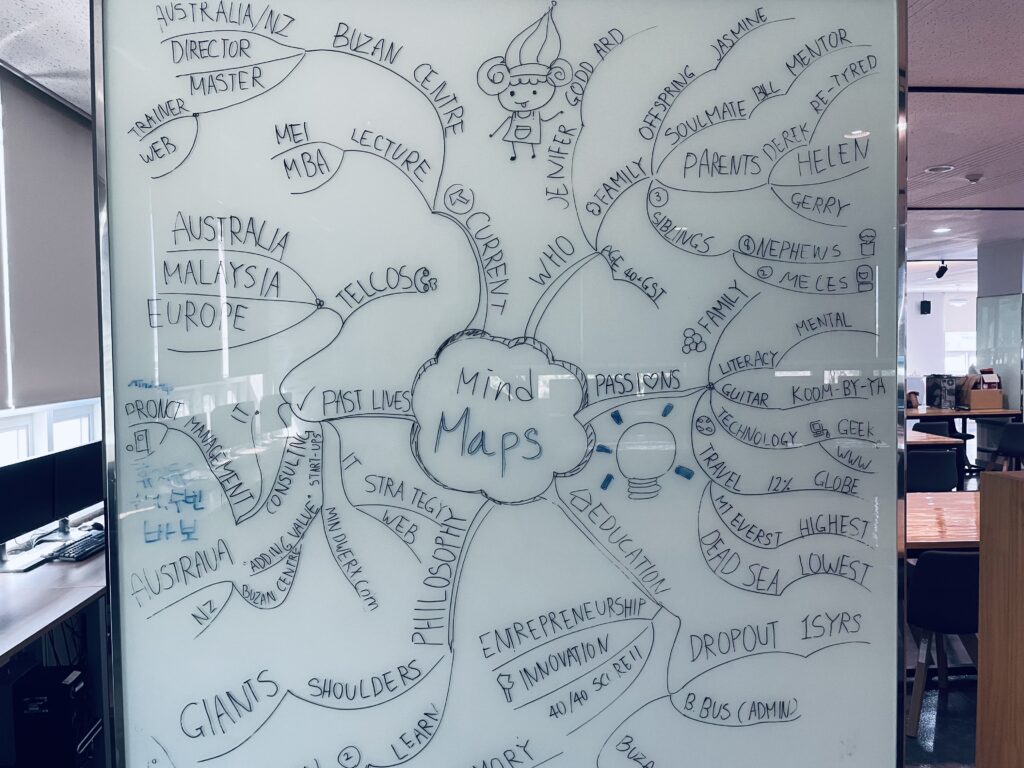 Mind
Maps
AUSTRALIA/NZ
DIRECTOR
MASTER
TRAINER
WEB
BUZAN CENTRE
MEI
MBA
LECTURE
CURRENT
AUSTRALIA
MALAYSIA
EUROPE
TELCOS
PAST LIVES
IT
MANAGEMENT
ONSULTING
START-UPS
"ADDING VALUE"
BUZAN CENTRE
MINDWERX.com
AUSTRALIA
NZ
IT
STRATEGY
WEB
PHILOSOPHY
GIANTS
SHOULDERS
2
LEARN
WHO
JENNIFER GODDARD
FAMILY
OFFSPRING
JASMINE
SOULMATE
BILL
MENTOR
PARENTS
DERIK
RE-TYRED
HELEN
GERRY
3
SIBLINGS
4 NEPHEWS
2
AGE
PASSIONS
FAMILY
LITERACY
MENTAL
GUITAR
KOOM-BY-YA
TECHNOLOGY
GEEK
WWW
TRAVEL
12%
GLOBE
MT EVERST
HIGHEST
DEAD SEA
LOWEST
EDUCATION
ENTREPRENEURSHIP
INNOVATION
40/40
DROPOUT
15YRS
B BUS (ADMIN)
바보